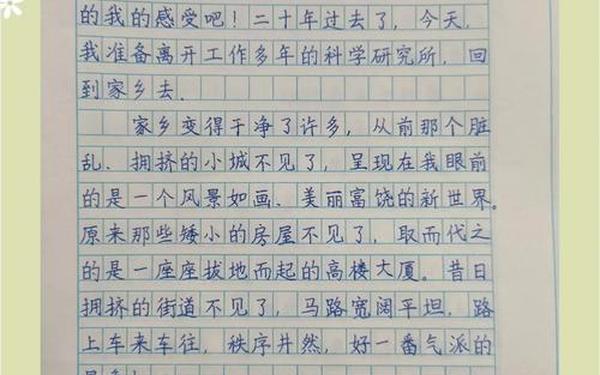 的我的感受吧！二十年过去了，今天，
我准备离开工作多年的科学研究所，回
到家乡去.
家乡变得干净了许多，从前那个脏
乱、拥挤的小城不见了，呈现在我眼前
的是一个风景如画、美丽富饶的新世界。
原来那些矮小的房屋不见了，取而代之
的是一座座拔地而起的高楼大厦。昔日
拥挤的街道不见了，马路宽阔平坦，路
上车来车往，秩序井然，好一番气派的